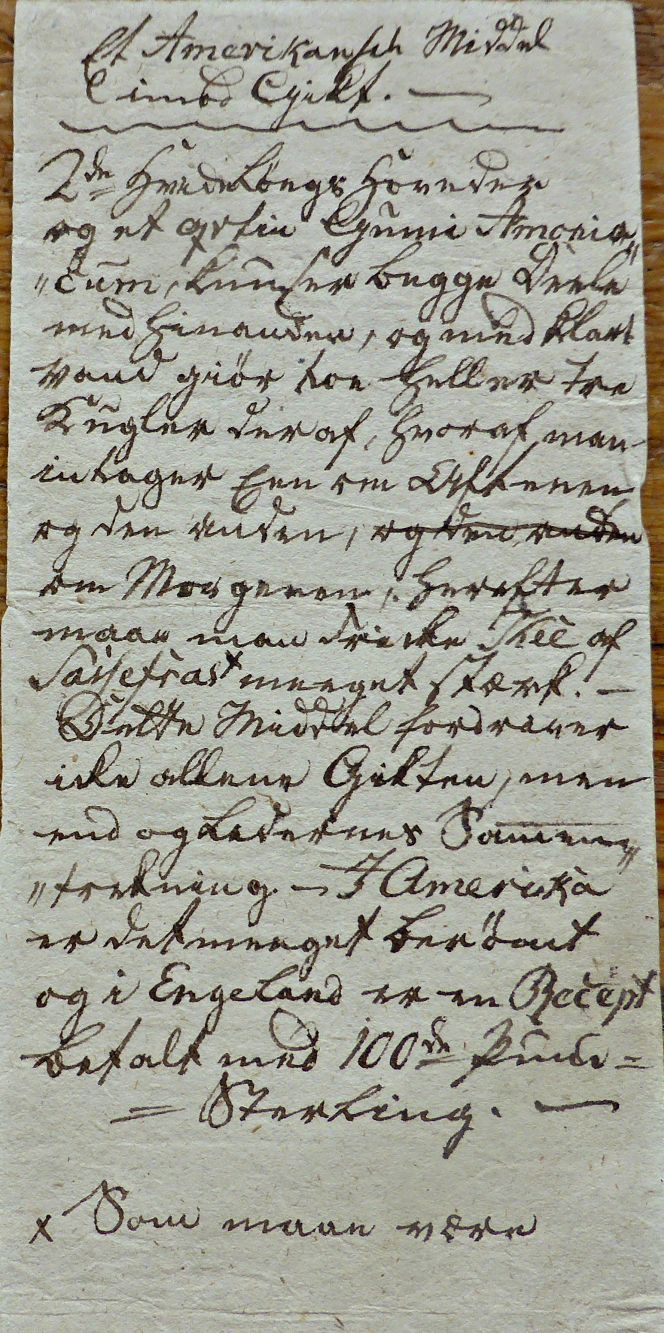 Et Amerikansch Middel
imod Gigt. —
2de Hvideløgs Hoveder
og et qvtin Gumi Amonia„
„cum, knuser begge Deele
med hinanden, og med klart
vand giör toe heller tre
Kugler deraf, hvoraf man
intager Een om Aftenen
og den anden, og den anden
om Morgenen, herefter
maae man dricke Thee af
Sassefras x meeget stærk. —
Dette Middel fordriver
icke allene Gikten, men
end og Ledernes Sammen„
„trekning. — I Amerika
er det meeget berömt
og i Engeland er en Recept
betalt med 100de Pund =
= Sterling. —
x Som maae være